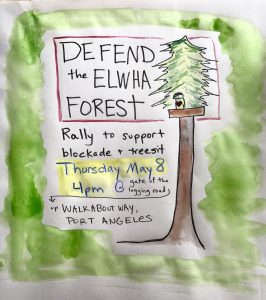 DEFEND
the ELWHA
FOREST
Rally to support
blockade + treesit
Thursday May 8
4pm @ gate of the
logging road,
WALKABOUT WAY,
PORT ANGELES